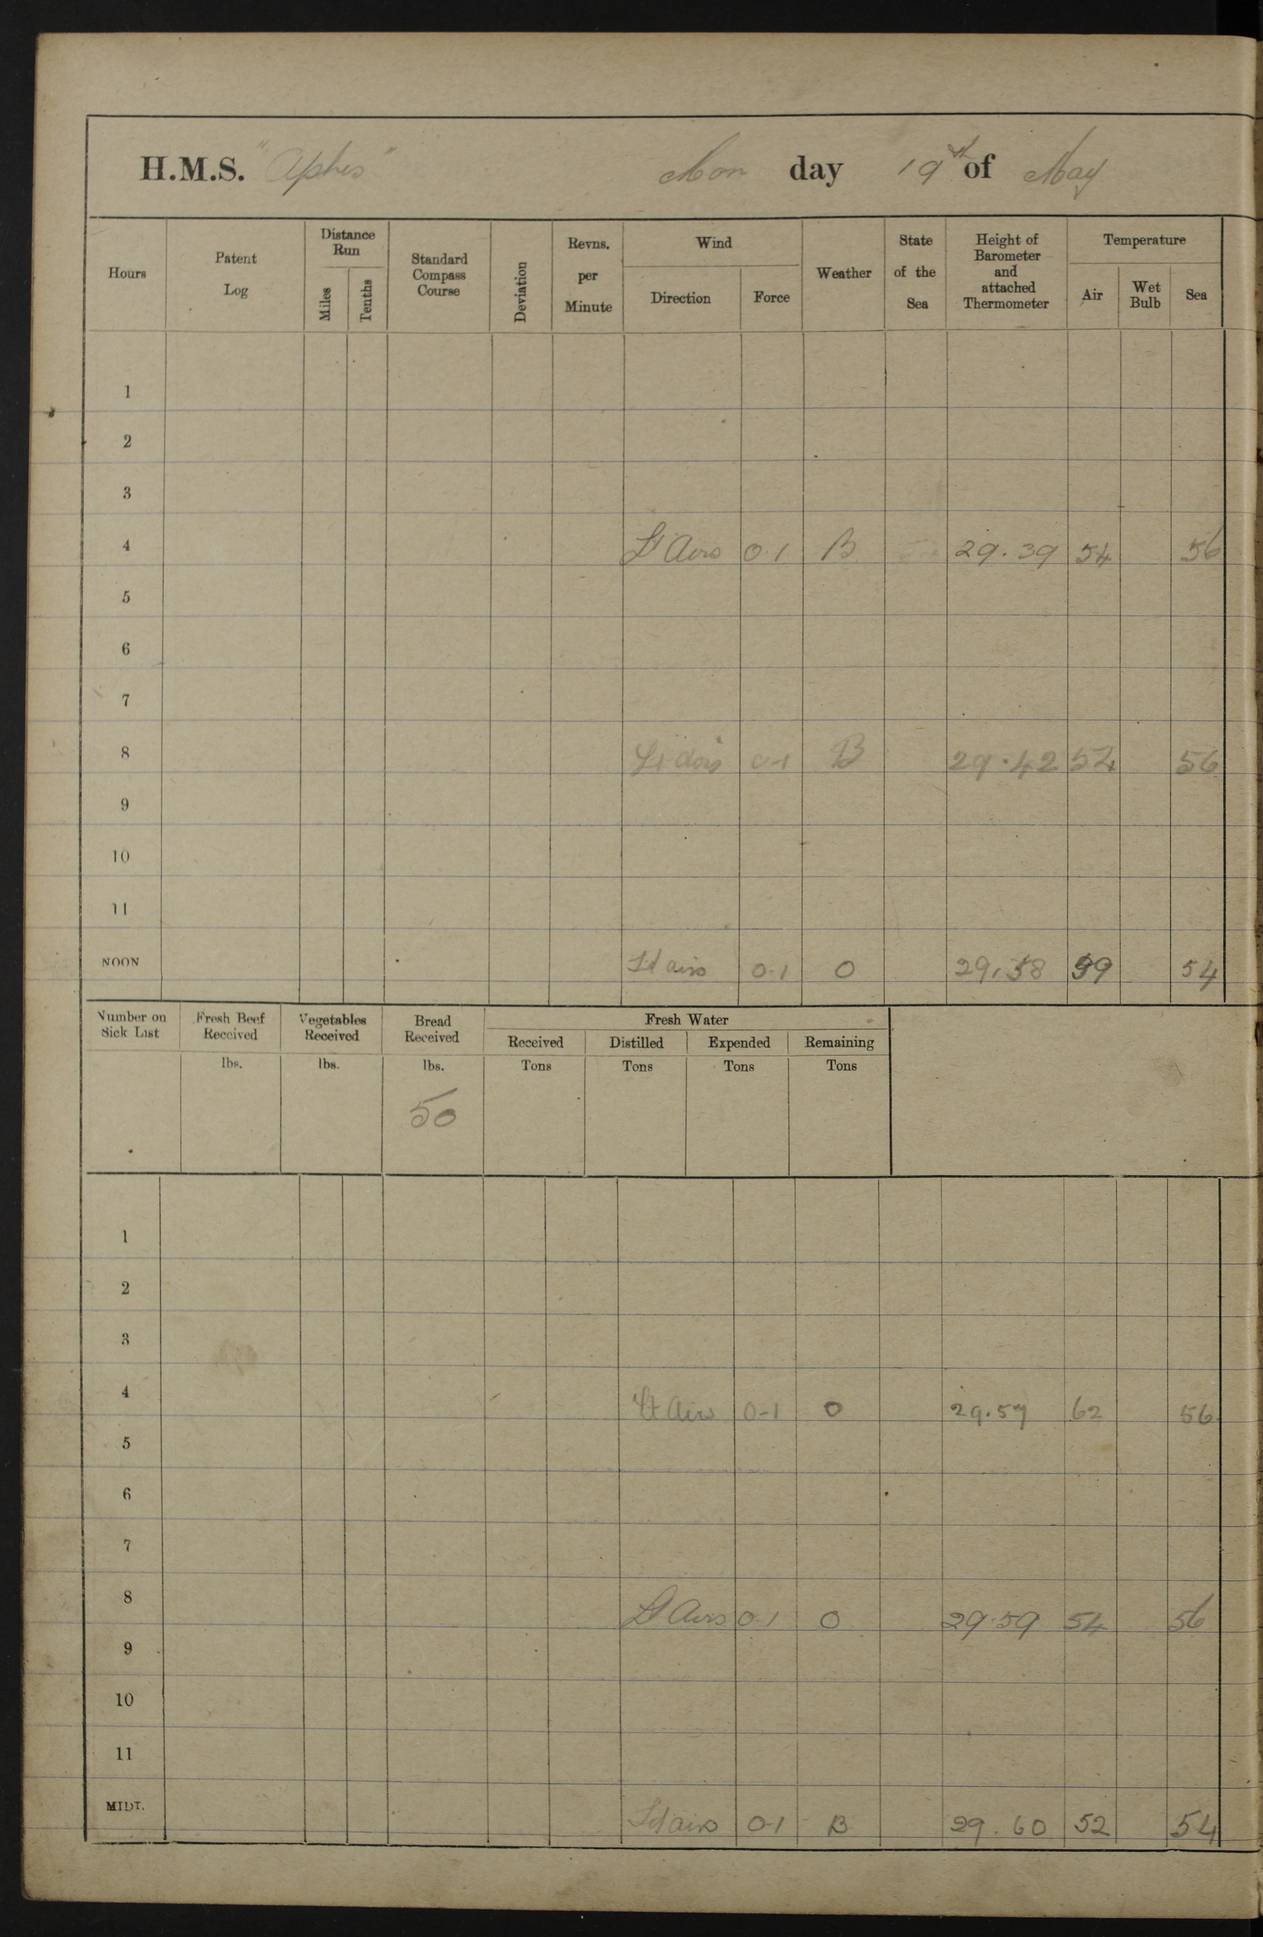 H.M.S. "Aphis" Mon day 19th of May
Hours Patent Log Distance Run Miles Tenths Standard Compass Course Deviation Revns. per Minute Wind Direction Force Weather State of the Sea Height of Barometer and attached Thermometer Temperature Air Wet Bulb Sea
1
2
3
4 Lt Airs 0-1 B 29.39 54 56
5
6
7
8 Lt Airs 0-1 B 29.42 52 56
9
10
11
NOON Lt airs 0-1 O 29.58 59 54
Number on Sick List Fresh Beef Received Vegetables Received Bread Received Fresh Water
Received Distilled Expended Remaining
lbs. lbs. lbs. Tons Tons Tons Tons
50
1
2
3
4 Lt Airs 0-1 O 29.57 62 56
5
6
7
8 Lt Airs 0-1 O 29.59 54 56
9
10
11
MIDT. Lt airs 0-1 B 29.60 52 54